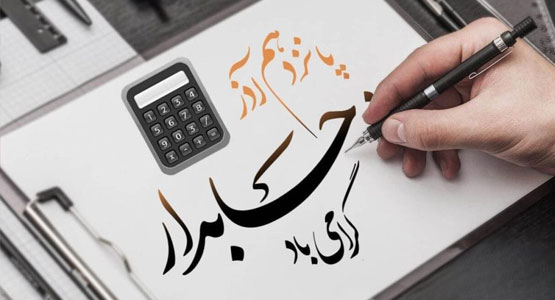 پانزدهم آذر
حسابدار
گرامی باد